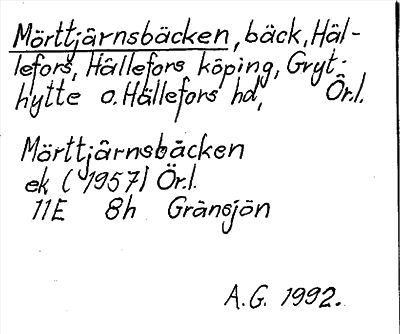 Mörttjärnsbäcken, bäck, Häl-
lefors, Hällefors köping, Gryt-
hytte o. Hällefors hd, Ör.l.
Mörttjärnsbäcken
ek (1957) Ör.l.
11E 8h Gränsjön
A.G. 1992.